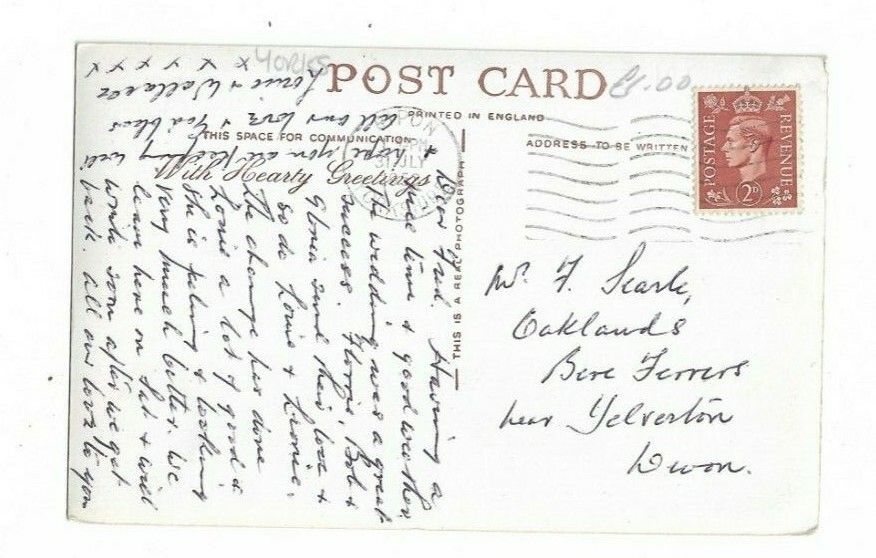 YORKS
£1.00
POST CARD
PRINTED IN ENGLAND
THIS SPACE FOR COMMUNICATION
ADDRESS TO BE WRITTEN
With Hearty Greetings
THIS IS A REAL PHOTOGRAPH
POSTAGE
REVENUE
2D
31 JLY
Dear Fred. Having a
nice time & good weather
The wedding was a great
success. Florrie, Bob &
Gloria send their love &
so do Louie &
The change has done
Louie a lot of good &
She is feeling & looking
very much better. We
leave here on Sat & will
write soon after we get
back. All our love to you
& hope you are keeping well
All our love & God bless
Louie & Wallace
x x x x x x
Mr. F. Searle,
Oaklands
Bere Ferrers
near Yelverton
Devon.